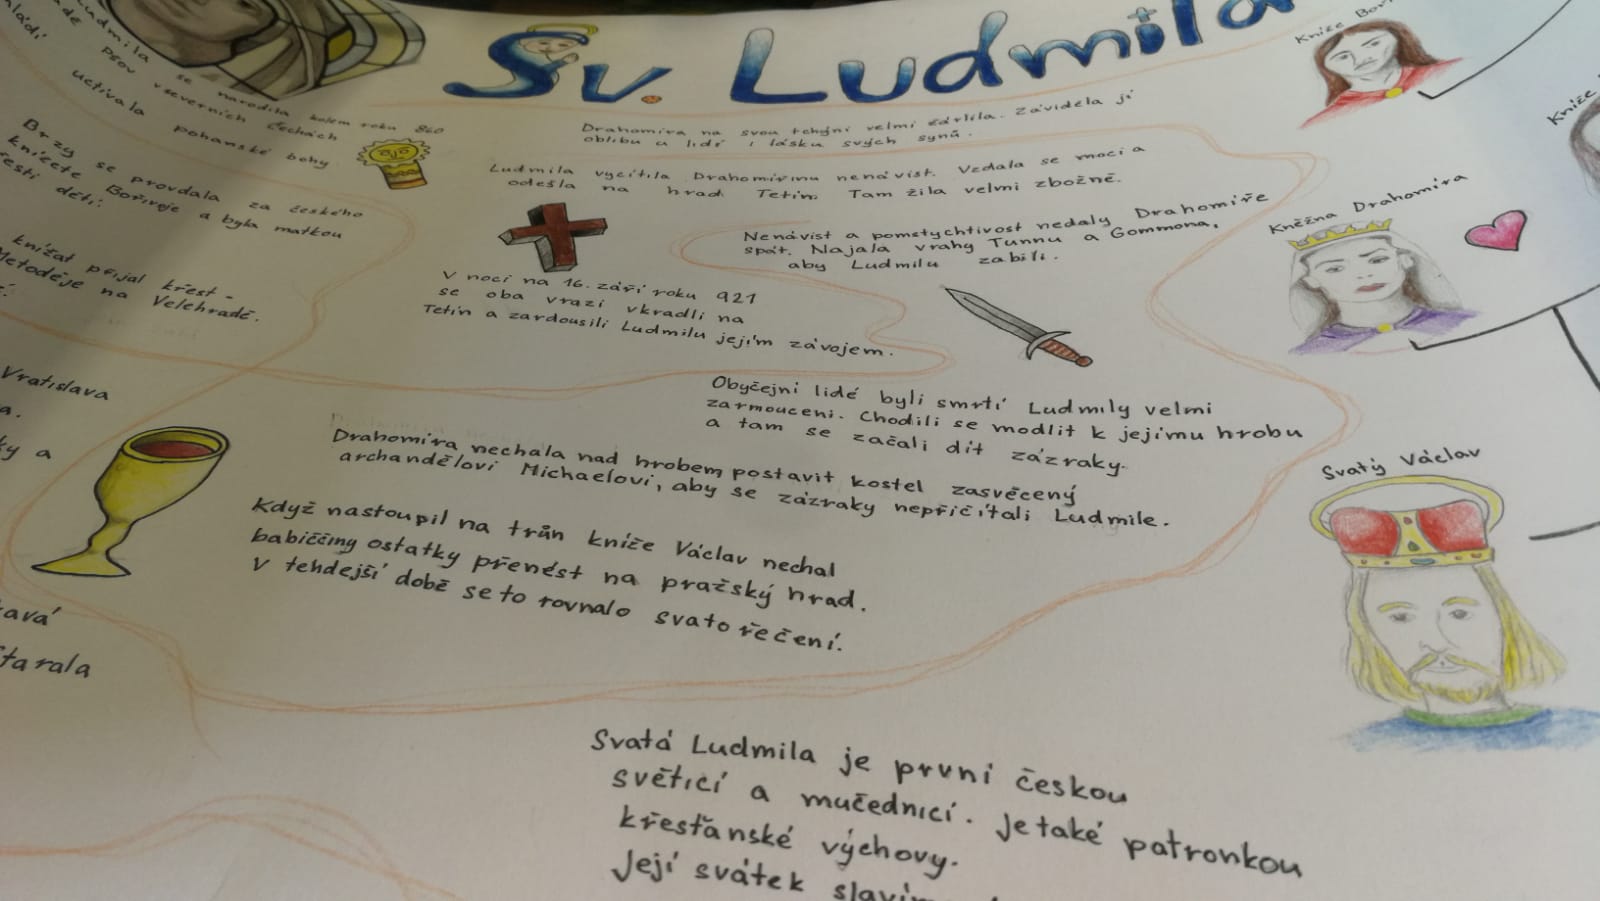 Sv. Ludmila
Ludmila se narodila kolem roku 860
Pšov v severních Čechách
uctívala pohanské bohy
Brzy se provdala za českého
knížete Bořivoje a byla matkou
šesti dětí.
knížat přijal křest -
Metoděje na Velehradě.
Vratislava
ky a
tarala
Drahomíra na svou tchýni velmi žárlila. Záviděla jí
oblibu u lidí i lásku svých synů.
Ludmila vycítila Drahomířinu nenávist. Vzdala se moci a
odešla na hrad Tetín. Tam žila velmi zbožně.
Nenávist a pomstychtivost nedaly Drahomíře
spát. Najala vrahy Tunnu a Gommona,
aby Ludmilu zabili.
V noci na 16. září roku 921
se oba vrazi vkradli na
Tetín a zardousili Ludmilu jejím závojem.
Obyčejní lidé byli smrtí Ludmily velmi
zarmouceni. Chodili se modlit k jejímu hrobu
a tam se začali dít zázraky.
Drahomíra nechala nad hrobem postavit kostel zasvěcený
archandělovi Michaelovi, aby se zázraky nepřičítali Ludmile.
Když nastoupil na trůn kníže Václav nechal
babiččiny ostatky přenést na pražský hrad.
V tehdejší době se to rovnalo svatořečení.
Svatá Ludmila je první českou
světicí a mučednicí. Je také patronkou
křesťanské výchovy.
Její svátek slavím
Kníže Boř
Kníže
Kněžna Drahomíra
Svatý Václav